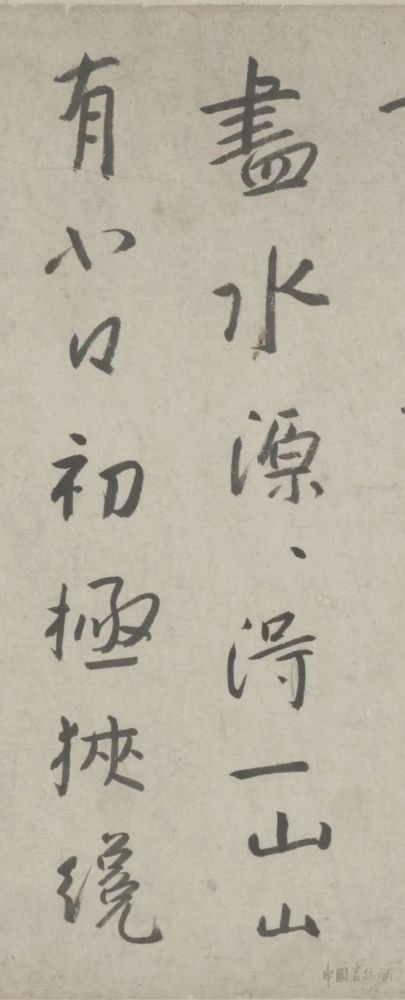 盡水源、得一山山
有小口初極狹纔
中國書法網